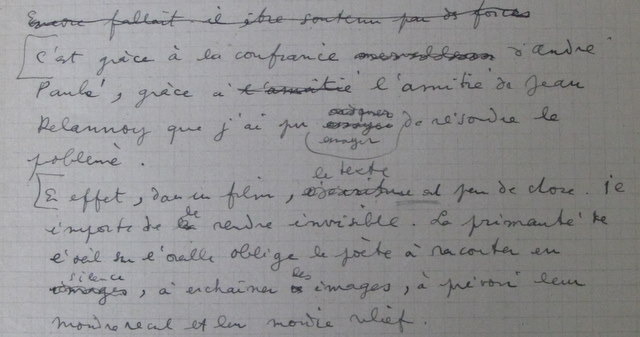 Encore fallait il être soutenu par des forces
C'est grâce à la confiance d'andré
Paulé, grâce à l'amitié l'amitié de Jean
Delannoy que j'ai pu essayer de résoudre le
problème.
le texte
En effet, dans un film, est peu de chose. Il
importe de le rendre invisible. La primauté de
l'œil sur l'oreille oblige le poète à raconter en
silence
images, à enchaîner les images, à prévoir leur
moindre recul et leur moindre relief.